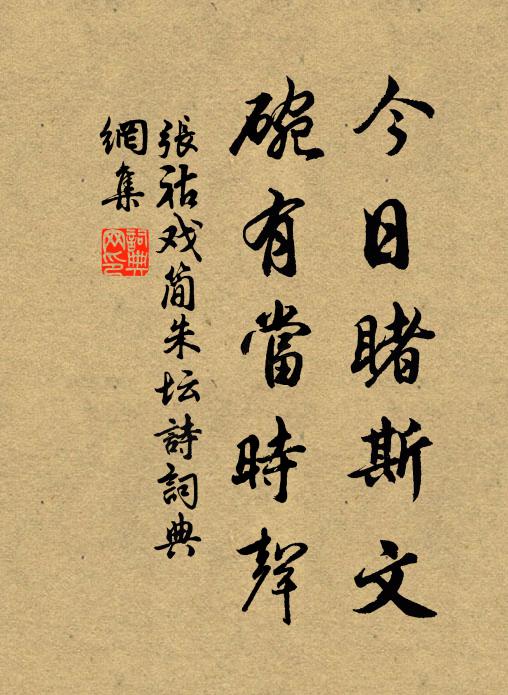 今日睹斯文
碗有當時聲
張祜戏簡朱坛詩詞典
網集
詞典
网印